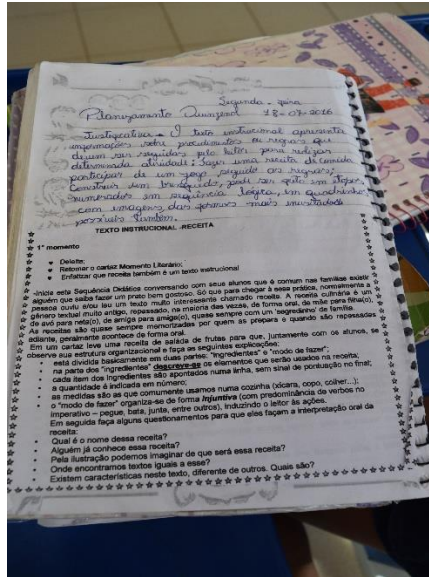 Segunda - feira
Planejamento Quinzenal 18-07-2016
Justificativa - O texto instrucional apresenta
informações sobre procedimentos ou regras que
devem ser seguidas pelo leitor para realizar
determinada atividade: fazer uma receita de comida
participar de um jogo, seguido as regras;
Construir um brinquedo, pode ser feito em etapas,
numerados em sequência lógica, em quadrinhos
com imagens, das formas mais inusitadas
possíveis também.
TEXTO INSTRUCIONAL -RECEITA
1° momento
• Deleite:
• Retomar o cartaz Momento Literário;
• Enfatizar que receita também é um texto instrucional
-Inicie esta Sequência Didática conversando com seus alunos que é comum nas famílias existir
alguém que saiba fazer um prato bem gostoso. Só que para chegar à essa prática, normalmente a
pessoa ouviu e/ou leu um texto muito interessante chamado receita. A receita culinária é um
gênero textual muito antigo, repassado, na maioria das vezes, de forma oral, de mãe para filha(o),
de avó para neta(o), de amiga para amiga(o), quase sempre com um 'segredinho' de família.
As receitas são quase sempre memorizadas por quem as prepara e quando são repassadas
adiante, geralmente acontece de forma oral.
Em um cartaz leve uma receita de salada de frutas para que, juntamente com os alunos, se
observe sua estrutura organizacional e faça as seguintes explicações:
• está dividida basicamente em duas partes: "ingredientes" e "modo de fazer";
• na parte dos "ingredientes" descreve-se os elementos que serão usados na receita;
• cada item dos ingredientes são apontados numa linha, sem sinal de pontuação no final;
• a quantidade é indicada em número;
• as medidas são as que comumente usamos numa cozinha (xícara, copo, colher...);
• o "modo de fazer" organiza-se de forma injuntiva (com predominância de verbos no
imperativo – pegue, bata, junte, entre outros), induzindo o leitor às ações.
Em seguida faça alguns questionamentos para que eles façam a interpretação oral da
receita:
• Qual é o nome dessa receita?
• Alguém já conhece essa receita?
• Pela ilustração podemos imaginar de que será essa receita?
• Onde encontramos textos iguais a esse?
• Existem características neste texto, diferente de outros. Quais são?